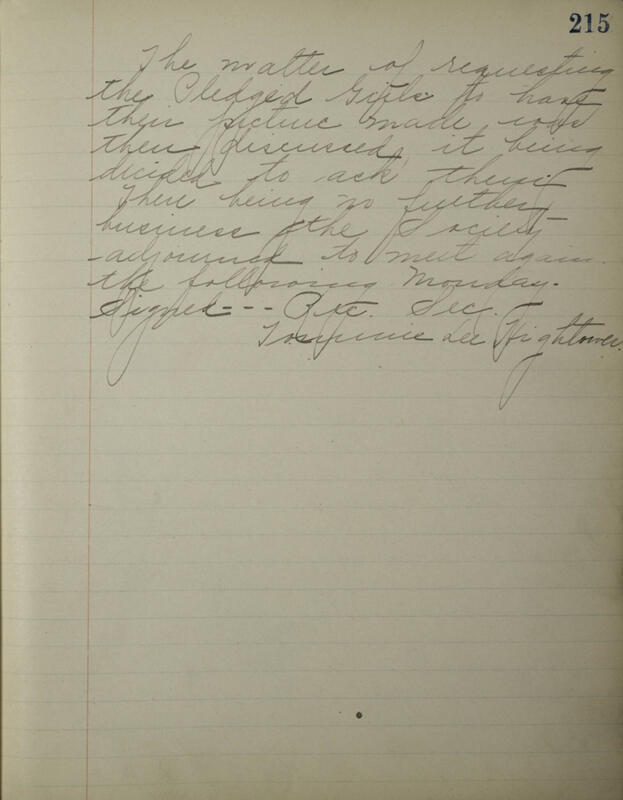 215
The matter of requesting
the Pledged Girls to have
their picture made was
then discussed, it being
decided to ask them.
There being no further
business the Society
adjourned to meet again
the following Monday.
Signed --- Rec. Sec.
Lee Hightower.